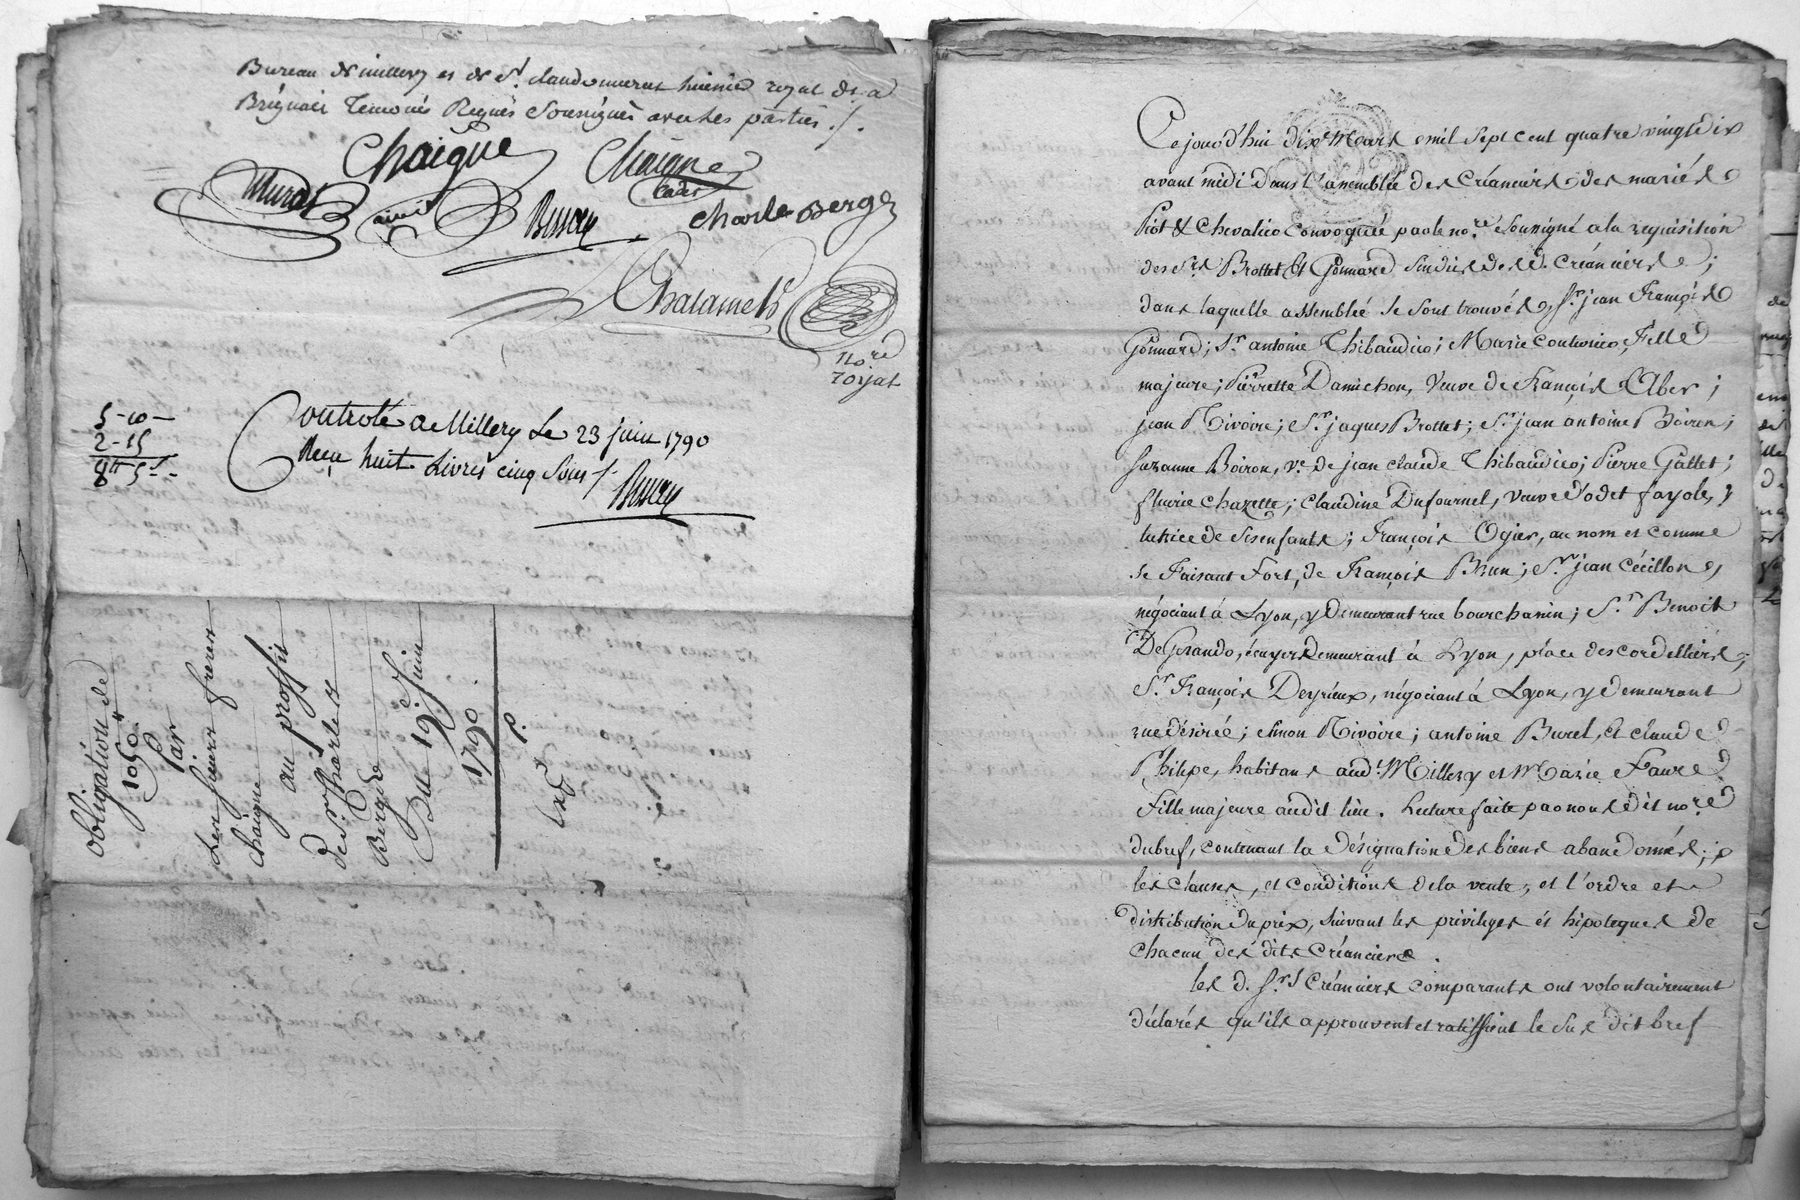 Bureau de millery et de Sr. Claude murat huissier royal de a
Brignais Temoins Requis Soussignés avec les parties ./.
Chaigne
Chaigne
Cadet
Murat
ainé
Bussery
Charle Berge
Chalamel
Nore
royal
5-10-
2-15
8tt 5s-
Controlé a Millery Le 23 juin 1790
Reçu huit Livres cinq Sous /.
Bussery
obligation de
1050tt
Par
Les Sieurs freres
Chaigne
au proffit
de Sr. Charles
Berge
Du 19e. Juin
1790
P.
exp
Cejourd'hui dixe Mars mil sept cent quatre vingt dix
avant midi dans l'assemblée des Créanciers des mariés
Piot & Chevalier Convoquée par le nore. Soussigné a la requisition
des Srs Brottet & Gonnard Sindics des d. Créanciers ;
dans laquelle assemblée se sont trouvés, Sr. jean François
Gonnard ; Sr. antoine Thibaudier ; Marie couturier, Fille
majeure ; Pierrette Damichon, Veuve de François Aber ;
jean Rivoire ; Sr. jaques Brottet ; Sr. jean antoine Boiron ;
Suzanne Boiron, Ve. de jean claude Thibaudier ; Pierre Gallet ;
fleurie Chazette ; Claudine Dufournel, veuve d'odet fayole,
tutrice de ses enfants ; François Ogier, au nom et comme
se Faisant Fort, de François Brun ; Sr. jean Cécillon,
négociant à Lyon, y demeurant rue bourchanin ; Sr. Benoit
DeGerando, écuyer demeurant à Lyon, place des cordelliers ;
Sr. François Deyrieux, négociant à Lyon, y demeurant
rue désirée ; simon Rivoire ; antoine Burel, et claude
Philipe, habitans aud. Millery et Marie Faure
Fille majeure audit lieu. Lecture faite par nous dit nore
du bref, contenant la désignation des biens abandonnés ;
les clauses, et conditions de la vente, et l'ordre et
distribution du prix, suivant les privileges et hipoteques de
chacun des dits Créanciers.
les d. Srs Créanciers comparants ont volontairement
déclarés qu'ils approuvent et ratiffient le sus dit bref